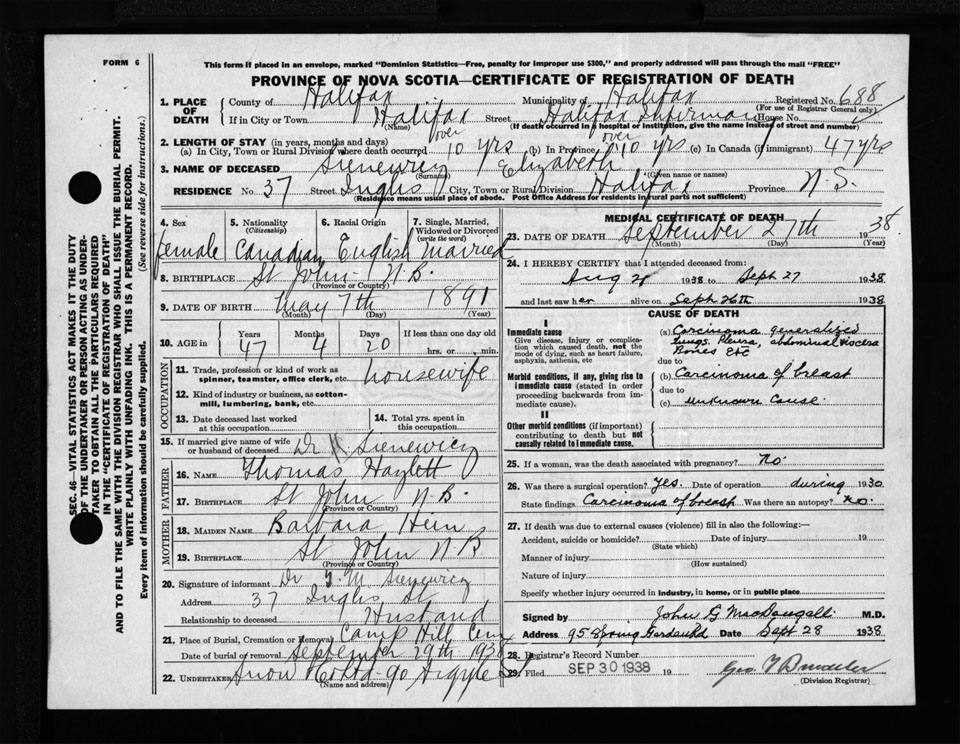 FORM 6
This form if placed in an envelope, marked "Dominion Statistics—Free, penalty for improper use $300," and properly addressed will pass through the mail "FREE"
PROVINCE OF NOVA SCOTIA—CERTIFICATE OF REGISTRATION OF DEATH
1. PLACE OF DEATH
County of Halifax Municipality of Halifax Registered No. 688
(For use of Registrar General only)
If in City or Town Halifax Street Halifax Infirmary House No.
(Name) (If death occurred in a hospital or institution, give the name instead of street and number)
2. LENGTH OF STAY (in years, months and days)
(a) In City, Town or Rural Division where death occurred over 10 yrs (b) In Province over 10 yrs (c) In Canada (if immigrant) 47 yrs
3. NAME OF DECEASED Sieniewicz Elizabeth
(Surname) (Given name or names)
RESIDENCE No. 37 Street Inglis City, Town or Rural Division Halifax Province N.S.
(Residence means usual place of abode. Post Office Address for residents in rural parts not sufficient)
4. Sex
female
5. Nationality
(Citizenship)
Canadian
6. Racial Origin
English
7. Single, Married, Widowed or Divorced
(write the word)
Married
8. BIRTHPLACE St John - N.B.
(Province or Country)
9. DATE OF BIRTH May 7th 1891
(Month) (Day) (Year)
10. AGE in
Years 47
Months 4
Days 20
If less than one day old
hrs. or min.
OCCUPATION
11. Trade, profession or kind of work as spinner, teamster, office clerk, etc. housewife
12. Kind of industry or business, as cotton-mill, lumbering, bank, etc.
13. Date deceased last worked at this occupation
14. Total yrs. spent in this occupation
15. If married give name of wife or husband of deceased Dr Sieniewicz
FATHER
16. NAME Thomas Hazlett
17. BIRTHPLACE St John N.B.
(Province or Country)
MOTHER
18. MAIDEN NAME Barbara
19. BIRTHPLACE St John N B
(Province or Country)
20. Signature of informant Dr T. M Sieniewicz
Address 37 Inglis St
Relationship to deceased Husband
21. Place of Burial, Cremation or Removal Camp Hill Cem
Date of burial or removal September 29th 1938
22. UNDERTAKER Snow & Co Ltd - 90 Argyle St
(Name and address)
MEDICAL CERTIFICATE OF DEATH
23. DATE OF DEATH September 27th 1938
(Month) (Day) (Year)
24. I HEREBY CERTIFY that I attended deceased from:
Aug 1938 to Sept 27 1938
and last saw her alive on Sept 26th 1938
CAUSE OF DEATH
I
Immediate cause
Give disease, injury or complication which caused death, not the mode of dying, such as heart failure, asphyxia, asthenia, etc
(a) Carcinoma generalized
lungs. Pleura, abdominal viscera
Bones etc
due to
Morbid conditions, if any, giving rise to immediate cause (stated in order proceeding backwards from immediate cause).
(b) Carcinoma of breast
due to
(c) unknown cause.
II
Other morbid conditions (if important) contributing to death but not causally related to immediate cause.
25. If a woman, was the death associated with pregnancy? no.
26. Was there a surgical operation? Yes. Date of operation during 1930
State findings Carcinoma of breast Was there an autopsy? no.
27. If death was due to external causes (violence) fill in also the following:—
Accident, suicide or homicide? Date of injury 19
(State which)
Manner of injury
(How sustained)
Nature of injury
Specify whether injury occurred in industry, in home, or in public place
Signed by John G MacDougall M.D.
Address 95 Spring Garden Rd Date Sept 28 1938
28. Registrar's Record Number
29. Filed SEP 30 1938 19
(Division Registrar)
SEC. 46—VITAL STATISTICS ACT MAKES IT THE DUTY OF THE UNDERTAKER OR PERSON ACTING AS UNDERTAKER TO OBTAIN ALL THE PARTICULARS REQUIRED IN THE "CERTIFICATE OF REGISTRATION OF DEATH" AND TO FILE THE SAME WITH THE DIVISION REGISTRAR WHO SHALL ISSUE THE BURIAL PERMIT.
WRITE PLAINLY WITH UNFADING INK. THIS IS A PERMANENT RECORD.
Every item of information should be carefully supplied. (See reverse side for instructions.)